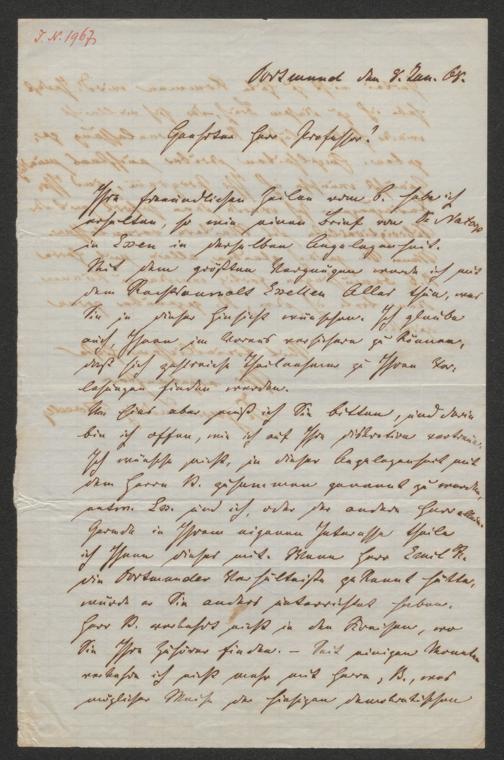 J. N. 1967
Dortmund den 8. Jan. 68.
Geehrter Herr Professor!
Ihre freundlichen Zeilen vom 6. habe ich
erhalten, so wie einen Brief von Natorp
in Essen in derselben Angelegenheit.
Mit dem größten Vergnügen werde ich mit
dem Rechtsanwalt Alles thun, was
Sie in dieser Hinsicht wünschen. Ich glaube
auch, Ihnen im Voraus versichern zu können,
daß sich zahlreiche Theilnehmer zu Ihren Vor-
lesungen finden werden.
Um Eins aber muß ich Sie bitten, und darin
bin ich offen, wie ich auf Ihre Discretion vertraue.
Ich wünsche nicht, in dieser Angelegenheit mit
dem Herrn B. zusammen genannt zu werden,
und ich, oder der andere Herr allein.
Gerade in Ihrem eigenen Interesse theile
ich Ihnen dieses mit. Wenn Herr R.
die Dortmunder Verhältnisse gekannt hätte,
würde er Sie anders unterrichtet haben.
Herr B. verkehrt nicht in den Kreisen, wo
Sie Ihre Zuhörer finden. – Seit einigen Monaten
verkehre ich nicht mehr mit Herrn B., was
möglicher Weise der hiesigen demokratischen